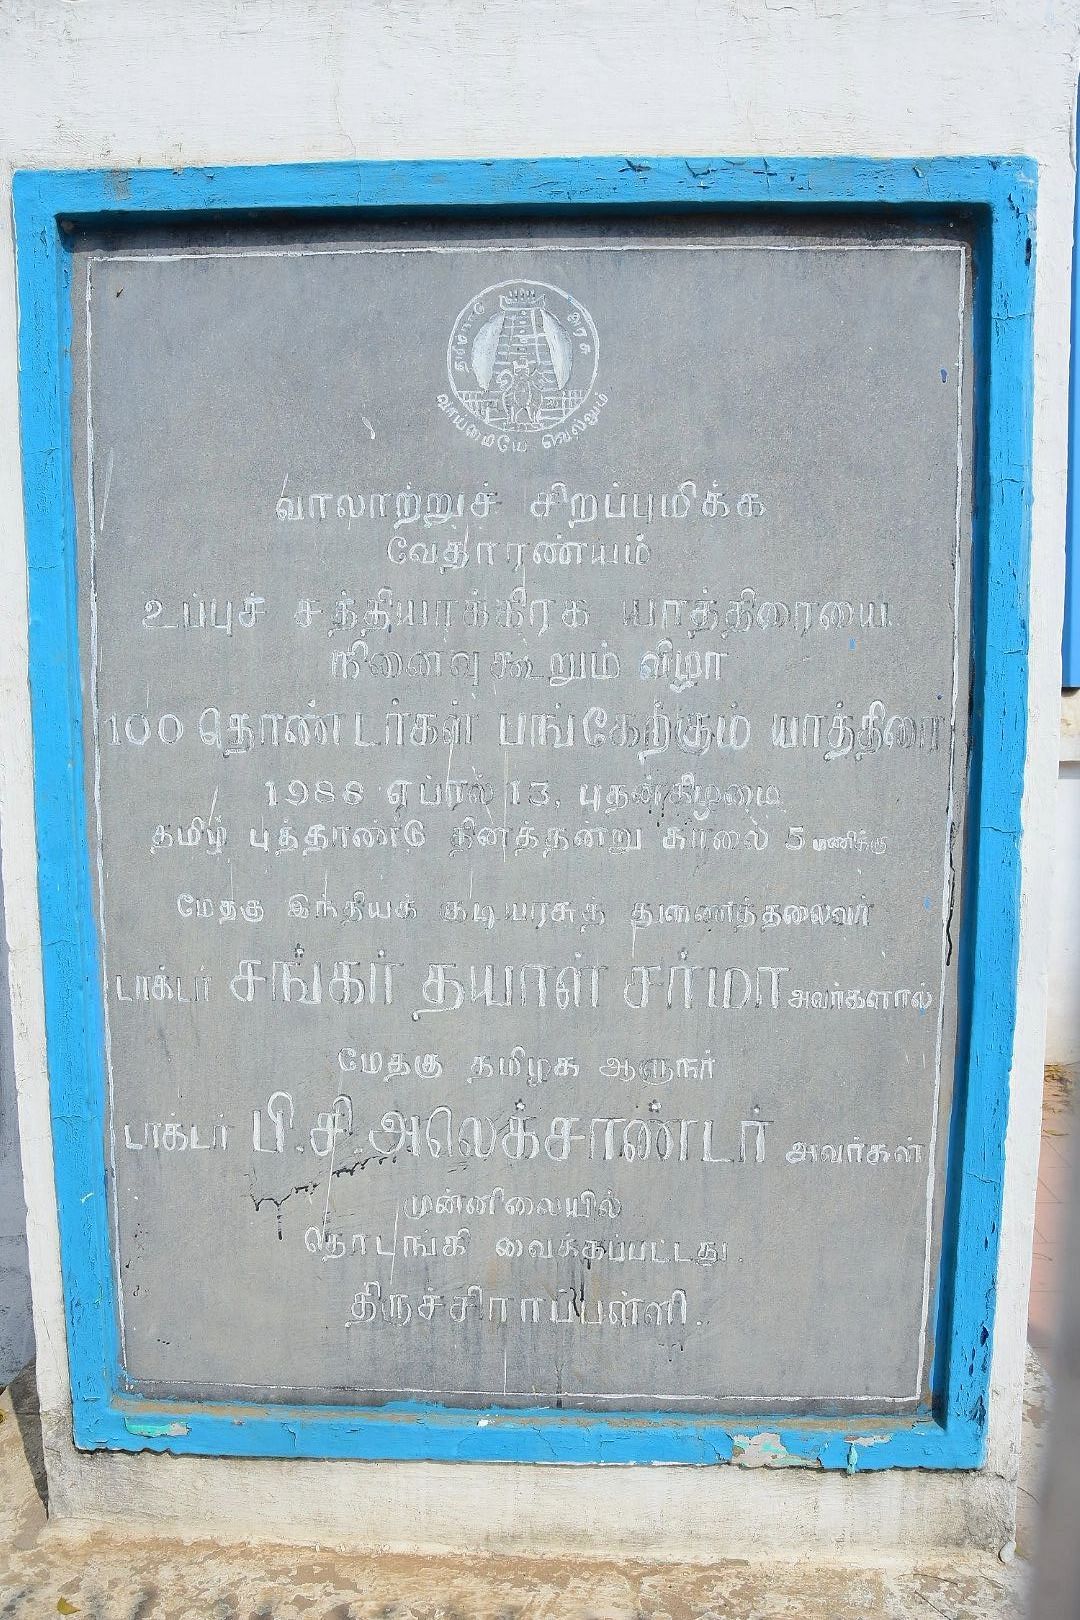 தமிழ்நாடு அரசு
வாய்மையே வெல்லும்
வரலாற்றுச் சிறப்புமிக்க
வேதாரண்யம்
உப்புச் சத்தியாக்கிரக யாத்திரையை
நினைவுகூறும் விழா
100 தொண்டர்கள் பங்கேற்கும் யாத்திரை
1988 ஏப்ரல் 13, புதன்கிழமை
தமிழ் புத்தாண்டு தினத்தன்று காலை 5 மணிக்கு
மேதகு இந்தியக் குடியரசுத் துணைத்தலைவர்
டாக்டர் சங்கர் தயாள் சர்மா அவர்களால்
மேதகு தமிழக ஆளுநர்
டாக்டர் பி.சி.அலெக்சாண்டர் அவர்கள்
முன்னிலையில்
தொடங்கி வைக்கப்பட்டது.
திருச்சிராப்பள்ளி.